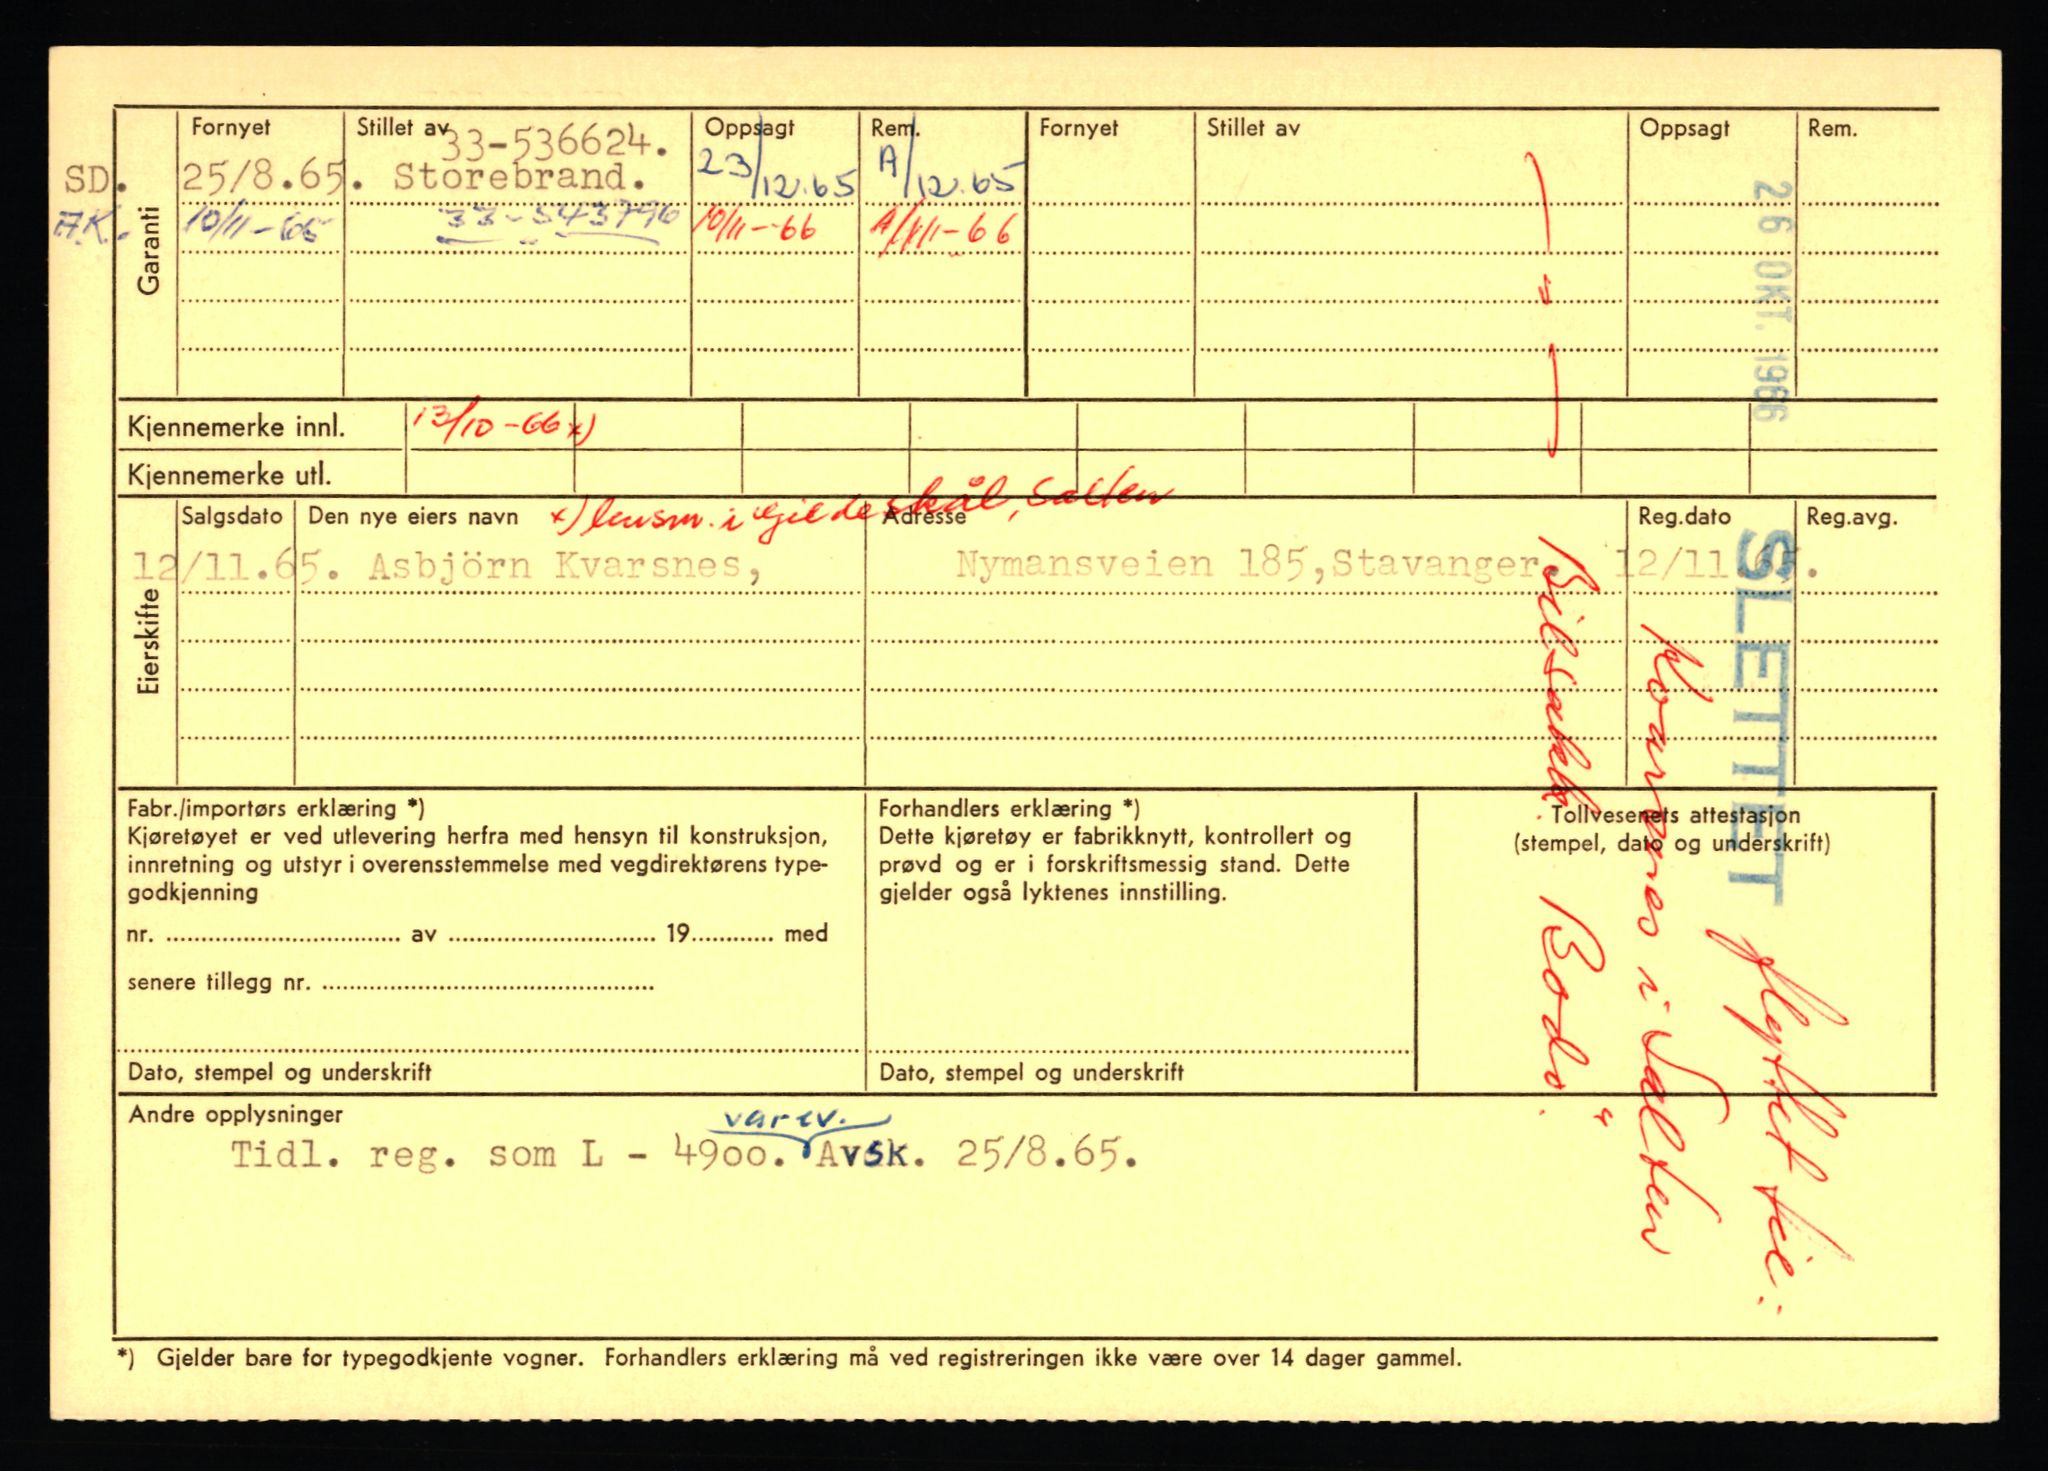 Fornyet Stillet av 33-536624. Oppsagt Rem. Fornyet Stillet av Oppsagt Rem.
SD. 25/8.65. Storebrand. 23/12.65 A/12.65
A.K. 10/11-65 33-543796 10/11-66 A/11-66
Garanti
26 OKT. 1966
Kjennemerke innl. 13/10-66 x)
Kjennemerke utl.
x) lensm. i Gildeskål, Salten
Salgsdato Den nye eiers navn Adresse Reg.dato Reg.avg.
12/11.65. Asbjörn Kvarsnes, Nymansveien 185, Stavanger. 12/11.65.
Eierskifte
SLETTET
flyttet til:
i Salten
Bilsakk. Bodø.
Fabr./importørs erklæring *)
Kjøretøyet er ved utlevering herfra med hensyn til konstruksjon,
innretning og utstyr i overensstemmelse med vegdirektørens type-
godkjenning
nr. av 19 med
senere tillegg nr.
Dato, stempel og underskrift
Forhandlers erklæring *)
Dette kjøretøy er fabrikknytt, kontrollert og
prøvd og er i forskriftsmessig stand. Dette
gjelder også lyktenes innstilling.
Dato, stempel og underskrift
Tollvesenets attestasjon
(stempel, dato og underskrift)
Andre opplysninger
varev.
Tidl. reg. som L - 4900. Avsk. 25/8.65.
*) Gjelder bare for typegodkjente vogner. Forhandlers erklæring må ved registreringen ikke være over 14 dager gammel.